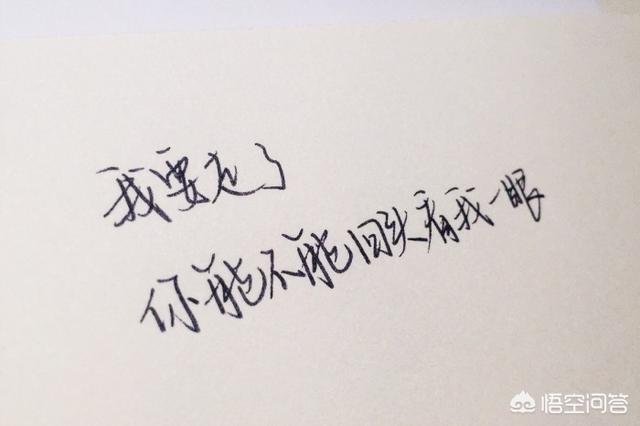 我要走了
你能不能回头看我一眼
悟空问答